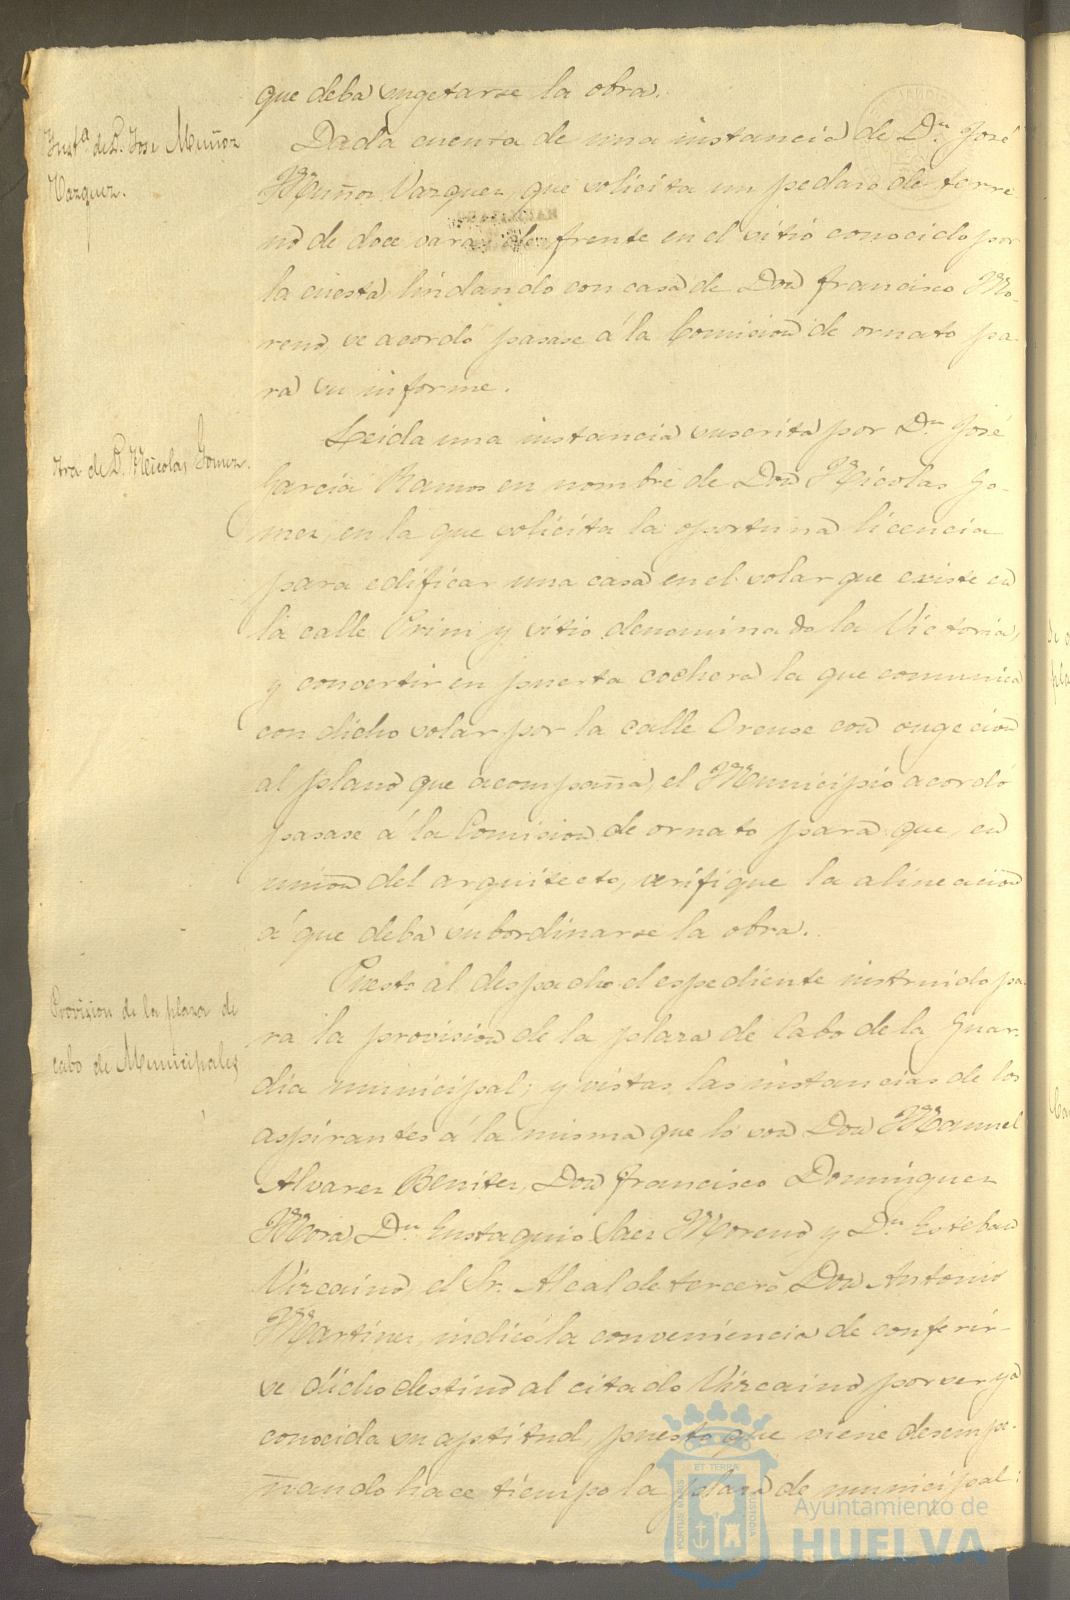 que deba sugetarse la obra.
Inst.ª de D. José Muñoz
Vazquez.
Dada cuenta de una instancia de D.n José
Muñoz Vazquez, que solicita un pedazo de terre
no de doce varas de frente en el sitio conocido por
la cuesta, lindando con casa de Don Francisco Mo-
reno, se acordó pasase á la Comision de ornato pa-
ra su informe.
Otra de D. Nicolas Gomez.
Leida una instancia suscrita por D.n José
Garcia Ramos en nombre de Don Nicolas Go-
mez, en la que solicita la oportuna licencia
para edificar una casa en el solar que existe en
la calle Prim y sitio denominado la Victoria,
y convertir en puerta cochera la que comunica
con dicho solar por la calle Orense con sugecion
al plano que acompaña, el Municipio acordó
pasase á la Comision de ornato para que, en
union del arquitecto, verifique la alineacion
á que deba subordinarse la obra.
Provision de la plaza de
cabo de Municipales
Puesto al despacho el espediente instruido pa-
ra la provision de la plaza de Cabo de la Guar-
dia municipal; y vistas las instancias de los
aspirantes á la misma que lo son Don Manuel
Alvarez Benitez, Don Francisco Dominguez
Mora, D.n Eustaquio Saez Moreno y D.n Esteban
Vizcaino, el Sr. Alcalde tercero Don Antonio
Martinez, indicó la conveniencia de conferir-
se dicho destino al citado Vizcaino por ser ya
conocida su aptitud, puesto que viene desempe-
ñando hace tiempo la plaza de municipal;
PORTUS MARIS ET TERRA CUSTODIA
Ayuntamiento de
HUELVA